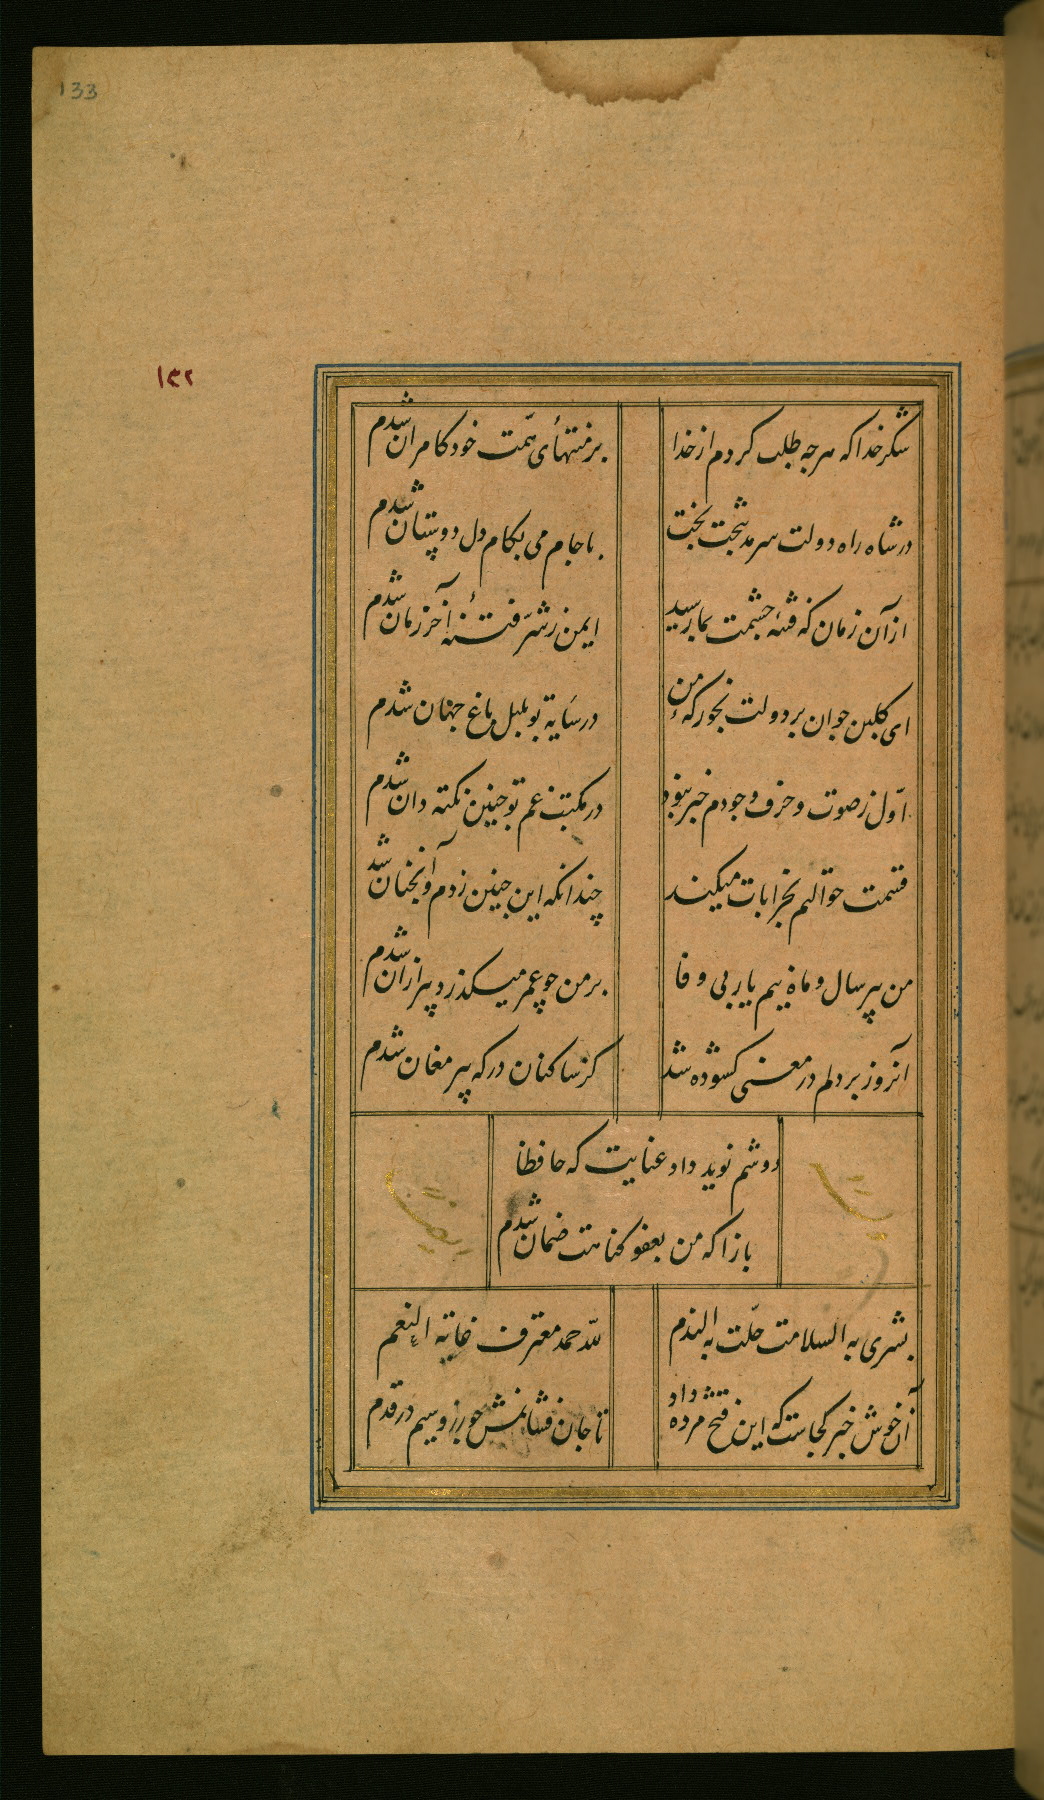 133
۱۳۲
شکر خدا که هرچه طلب کردم از خدا
بر منتهأی همّت خود کامران شدم
در شاه راه دولت سرمد بتخت بخت
با جام می بکام دل دوستان شدم
از آن زمان که فتنهٔ چشمت بما رسید
ایمن ز شرّ فتنهٔ آخر زمان شدم
ای گلبن جوان بر دولت بخور که من
در سایهٔ تو بلبل باغ جهان شدم
اوّل ز صوت و حرف وجودم خبر نبود
در مکتب غم تو چنین نکته دان شدم
قسمت حوالتم بخرابات میکند
چندانکه این چنین زدم و آنچنان شدم
من پیر سال و ماه نیم یار بی وفا
بر من چو عمر میگذرد پیر از آن شدم
آنروز بر دلم در معنی گشوده شد
کز ساکنان درگه پیر مغان شدم
دوشم نوید داد عنایت که حافظا
بازا که من بعفو گناهت ضمان شدم
بشری به السلامت حلّت به الندم
لله حمد معترف غایة النعم
آن خوش خبر کجاست که این فتح مژده داد
تا جان فشانمش چو زر و سیم در قدم